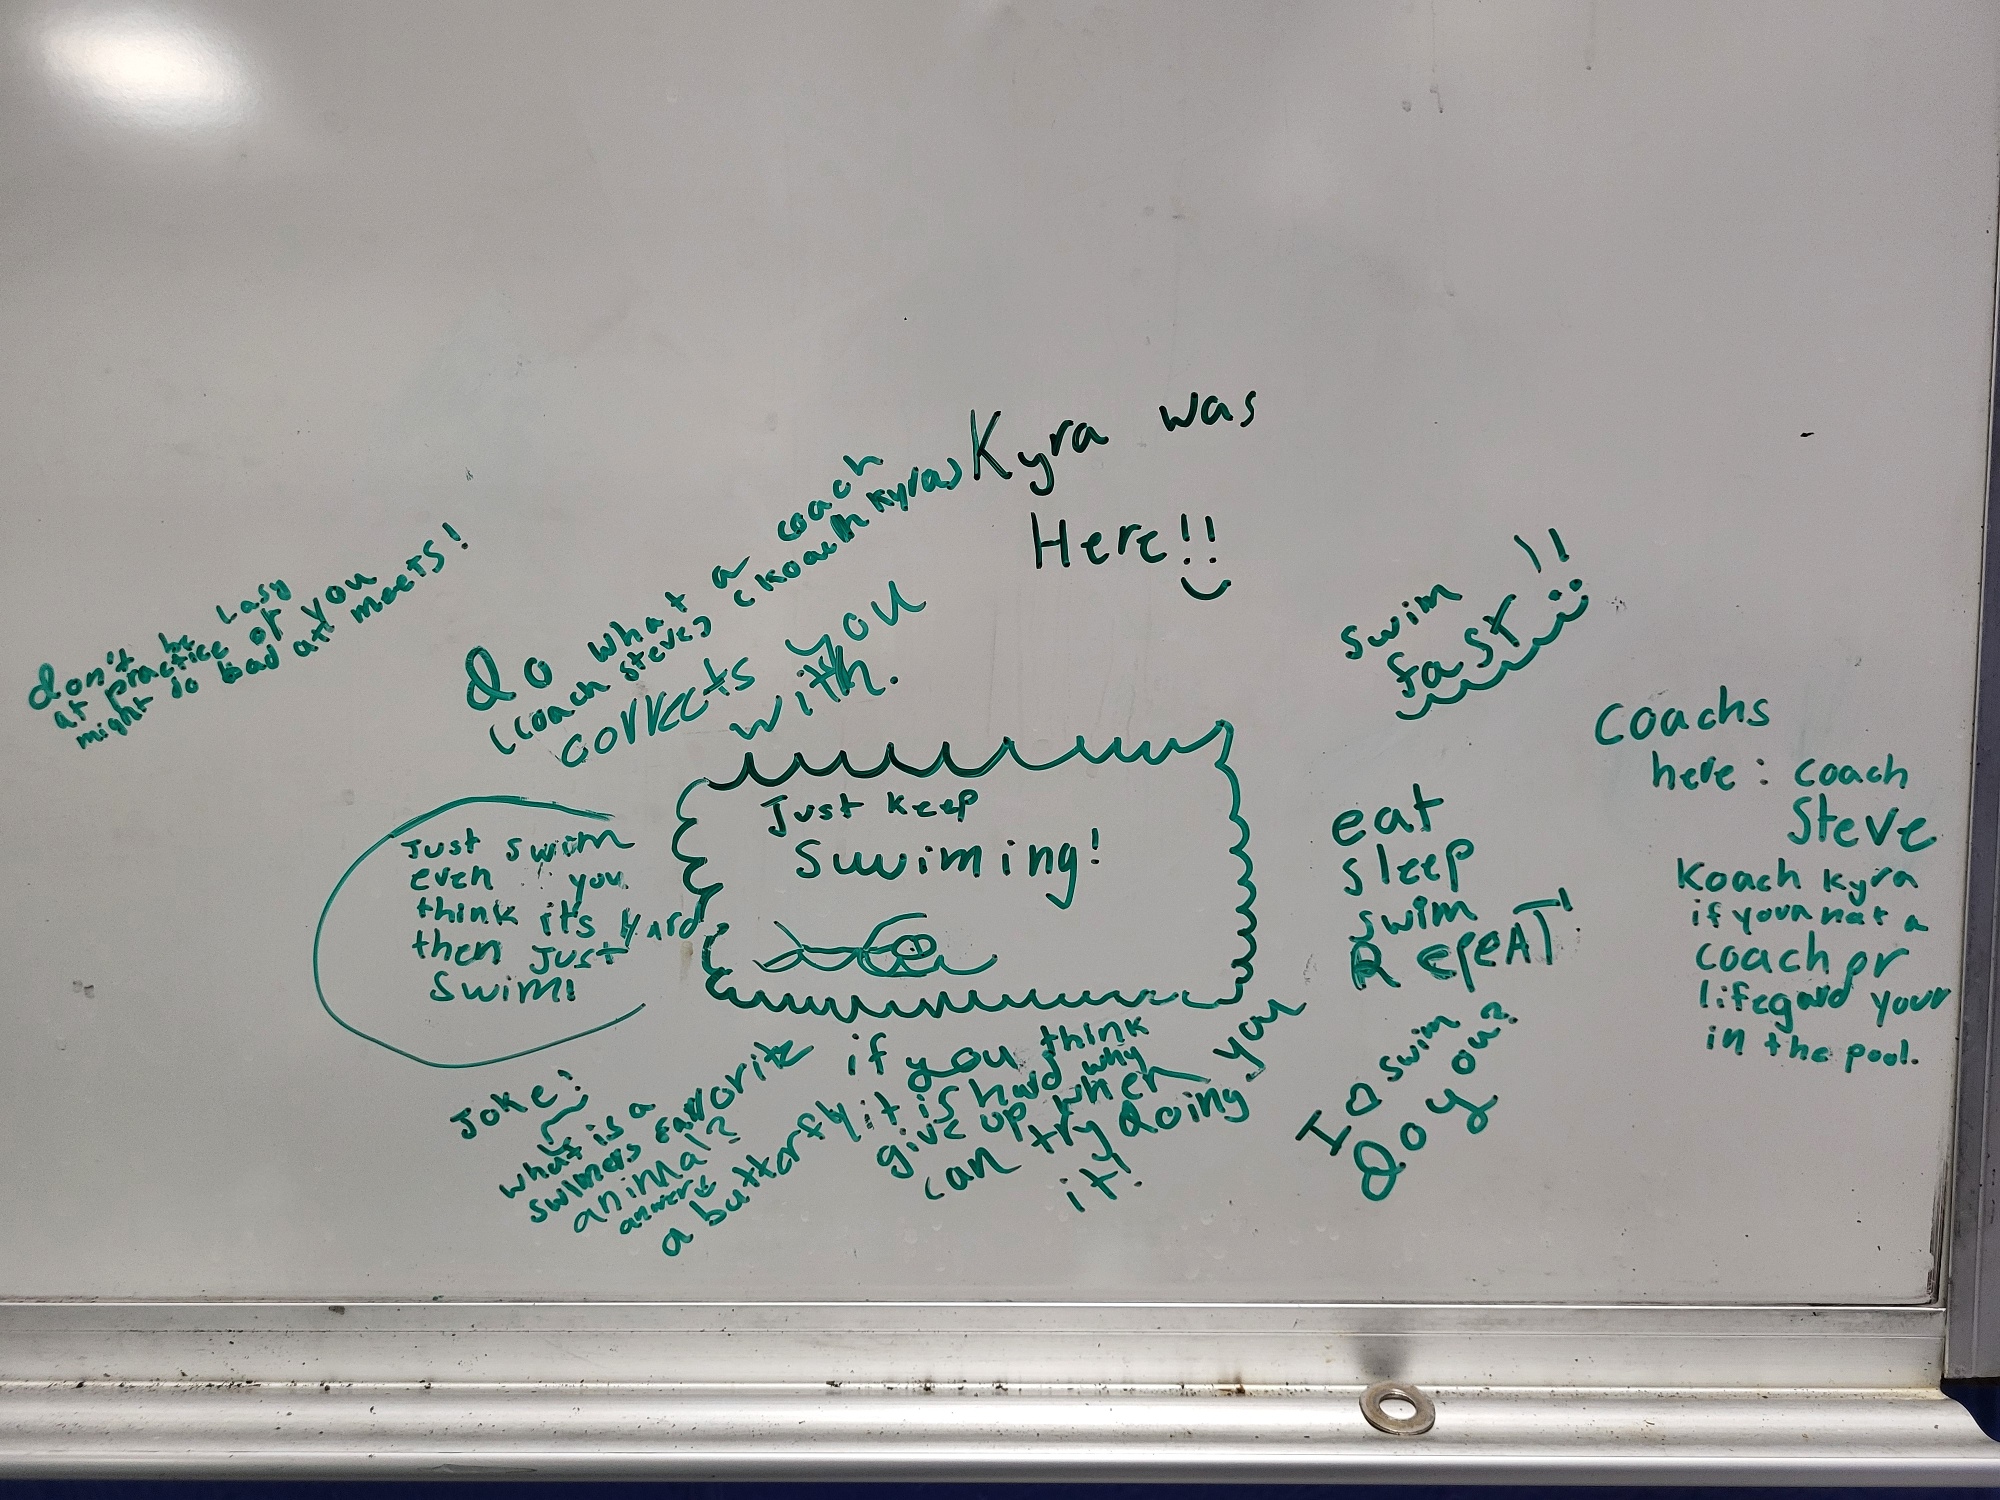 Kyra was
Here!!
don't be Lasy
at practice or you
might do bad at meets!
do what a coach
(coach steve) (koach kyra)
corrects you
with.
swim
fast!!
Coachs
here: coach
Steve
Koach kyra
if your not a
coach or
lifegard your
in the pool.
Just keep
Swiming!
Just swim
even you
think it's hard
then Just
Swim!
eat
sleep
swim
RepeAT!
I ♡ swim
do you?
Joke:
what is a
swimers favorite
aninmal?
a butterfly
if you think
it is hard why
give up when you
can try doing
it!